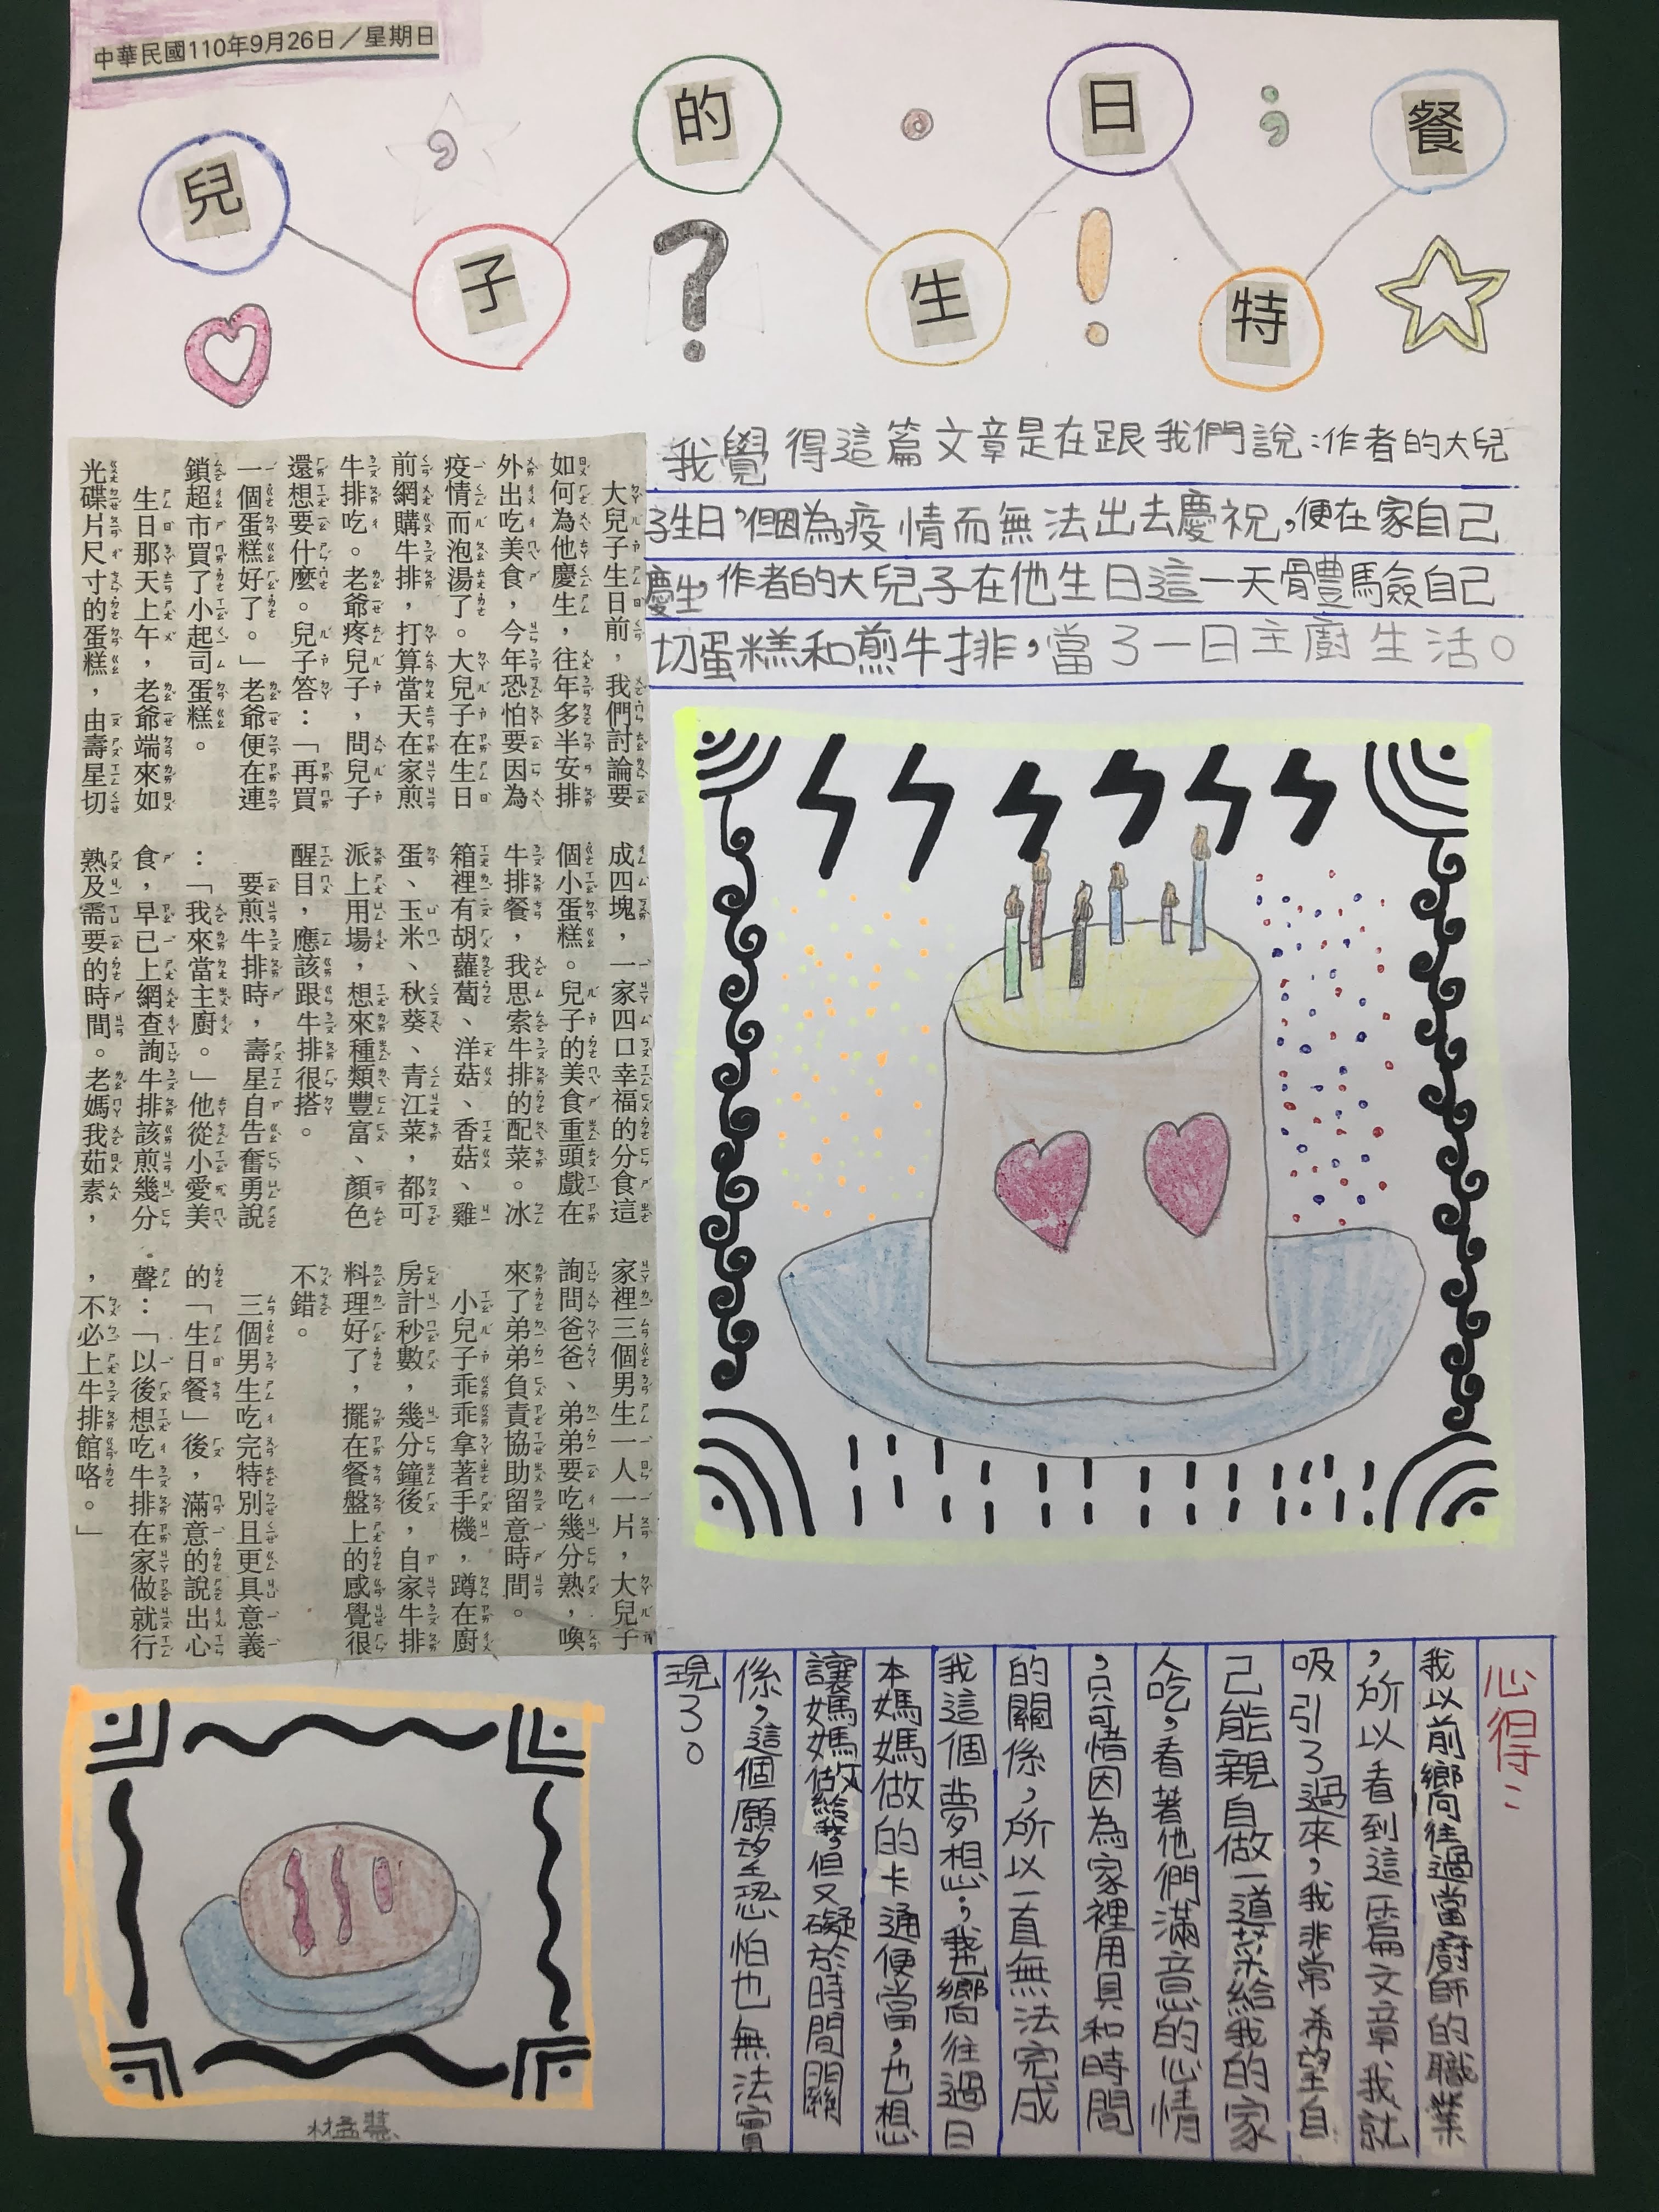 中華民國110年9月26日／星期日
兒子的生日特餐
我覺得這篇文章是在跟我們說:作者的大兒
子生日,但因為疫情而無法出去慶祝,便在家自己
慶生,作者的大兒子在他生日這一天體驗自己
切蛋糕和煎牛排,當了一日主廚生活。
大兒子生日前，我們討論要
如何為他慶生，往年多半安排
外出吃美食，今年恐怕要因為
疫情而泡湯了。大兒子在生日
前網購牛排，打算當天在家煎
牛排吃。老爺疼兒子，問兒子
還想要什麼。兒子答：「再買
一個蛋糕好了。」老爺便在連
鎖超市買了小起司蛋糕。
生日那天上午，老爺端來如
光碟片尺寸的蛋糕，由壽星切
成四塊，一家四口幸福的分食這
個小蛋糕。兒子的美食重頭戲在
牛排餐，我思索牛排的配菜。冰
箱裡有胡蘿蔔、洋菇、香菇、雞
蛋、玉米、秋葵、青江菜，都可
派上用場，想來種類豐富、顏色
醒目，應該跟牛排很搭。
要煎牛排時，壽星自告奮勇說
：「我來當主廚。」他從小愛美
食，早已上網查詢牛排該煎幾分
熟及需要的時間。老媽我茹素，
家裡三個男生一人一片，大兒子
詢問爸爸、弟弟要吃幾分熟，喚
來了弟弟負責協助留意時間。
小兒子乖乖拿著手機，蹲在廚
房計秒數，幾分鐘後，自家牛排
料理好了，擺在餐盤上的感覺很
不錯。
三個男生吃完特別且更具意義
的「生日餐」後，滿意的說出心
聲：「以後想吃牛排在家做就行
，不必上牛排館咯。」
心得：
我以前嚮往過當廚師的職業
,所以看到這篇文章我就
吸引了過來,我非常希望自
己能親自做一道菜給我的家
人吃,看著他們滿意的心情
,只可惜因為家裡用具和時間
的關係,所以一直無法完成
我這個夢想;我也嚮往過日
本媽媽做的卡通便當,也想
讓媽媽做給我,但又礙於時間關
係,這個願望恐怕也無法實
現了。